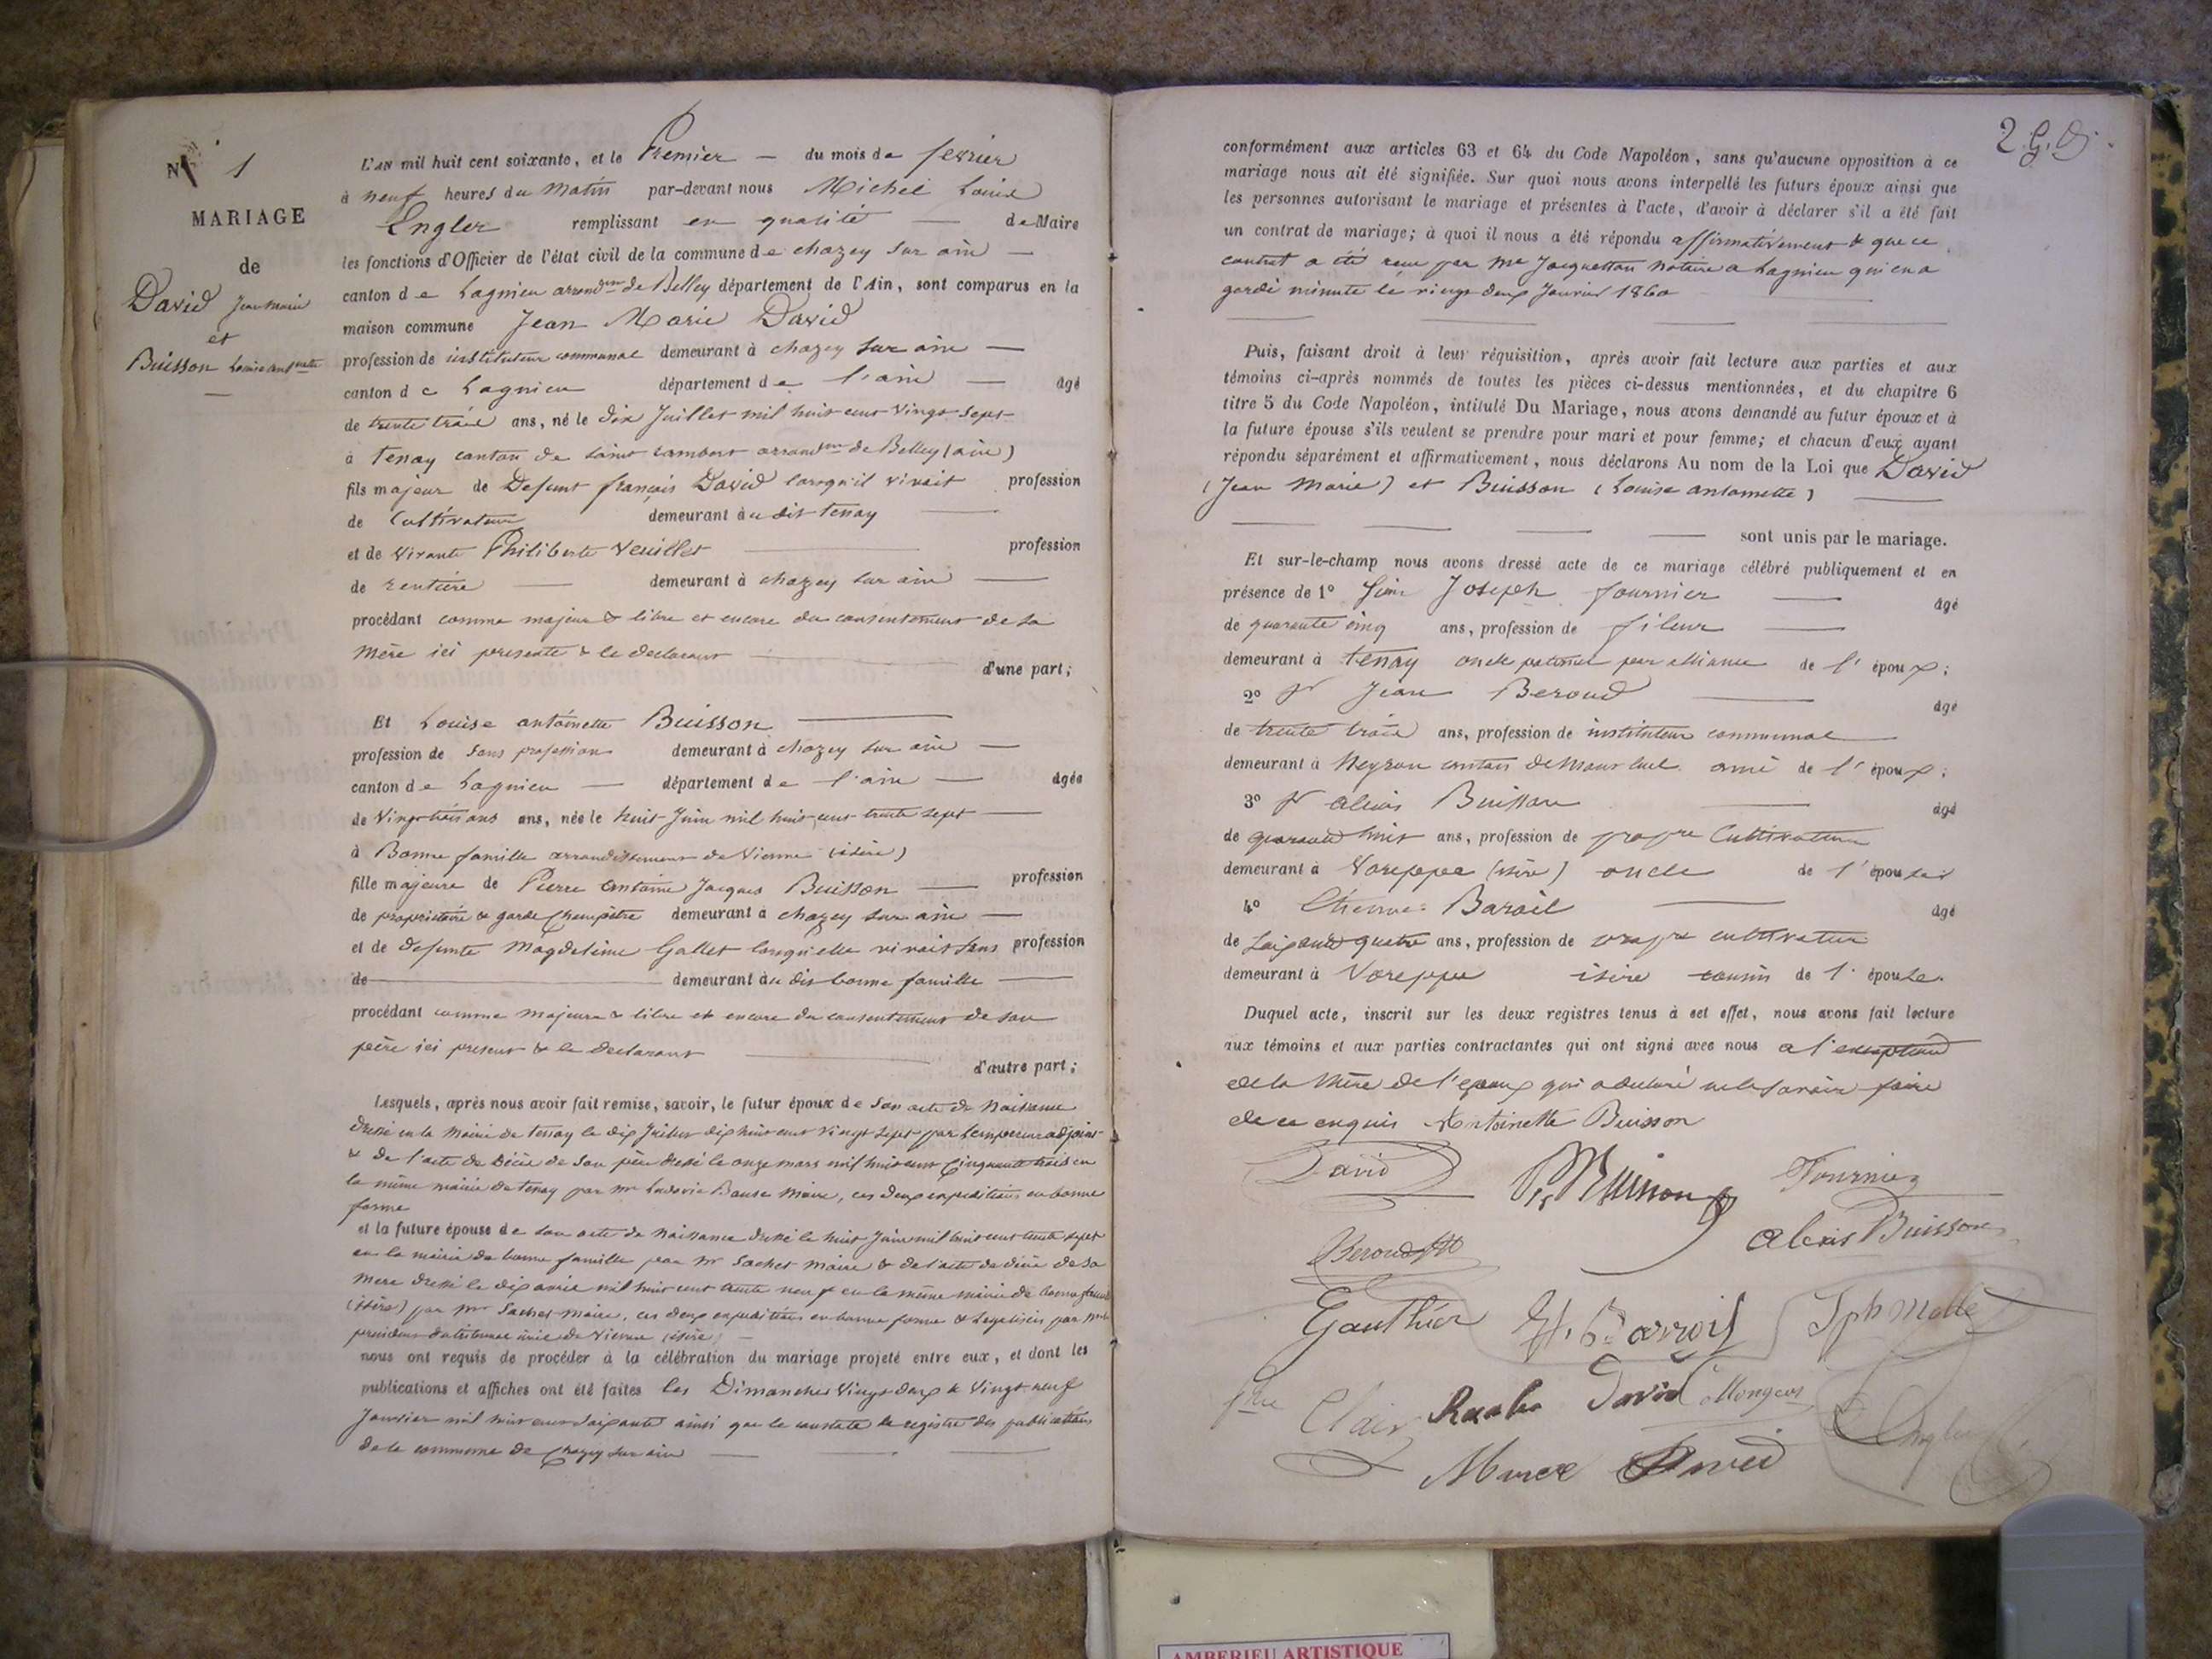 N° 1
MARIAGE
de
David Jean Marie
et
Buisson Louise Antnette
L'AN mil huit cent soixante, et le Premier du mois de fevrier
à neuf heures du Matin par-devant nous Michel Louis
Engler remplissant en qualité de Maire
les fonctions d'Officier de l'état civil de la commune de chazey sur ain
canton de Lagnieu arrondt de Belley département de l'Ain, sont comparus en la
maison commune Jean Marie David
profession de instituteur communal demeurant à chazey sur ain
canton de Lagnieu département de l'ain âgé
de trente trois ans, né le dix Juillet mil huit cent vingt sept
à Tenay canton de saint rambert arrondt de Belley (ain)
fils majeur de Defunt françois David lorsqu'il vivait profession
de Cultivateur demeurant au dit tenay
et de vivante Philiberte Veuillet profession
de rentière demeurant à chazey sur ain
procédant comme majeur & libre et encore du consentement de sa
mère ici presente & le declarant d'une part;
Et Louise antoinette Buisson
profession de sans profession demeurant à chazey sur ain
canton de Lagnieu département de l'ain âgée
de vingt trois ans ans, née le huit Juin mil huit cent trente sept
à Bonne famille arrondissement de Vienne (isère)
fille majeure de Pierre Antoine Jacques Buisson profession
de propriétaire & garde champêtre demeurant à chazey sur ain
et de defunte Magdeleine Gallet lorsqu'elle vivait sans profession
de demeurant au dit bonne famille
procédant comme majeure & libre et encore du consentement de son
père ici present & le declarant d'autre part;
Lesquels, après nous avoir fait remise, savoir, le futur époux de son acte de Naissance
dressé en la Mairie de tenay le dix Juillet dix huit cent vingt sept par adjoint
& de l'acte de Décès de son père dressé le onze mars mil huit cent cinquante trois en
la même mairie de tenay par mr Ludovic maire, ces deux expéditions en bonne
forme
et la future épouse de son acte de Naissance dressé le huit Juin mil huit cent trente sept
en la mairie de bonne famille par mr Sachet maire & de l'acte de décès de sa
mere dressé le dix avril mil huit cent trente neuf en la même mairie de bonne famille
(isère) par mr Sachet maire, ces deux expéditions en bonne forme & légalisées par mr le
president du tribunal civil de Vienne (isère)
nous ont requis de procéder à la célébration du mariage projeté entre eux, et dont les
publications et affiches ont été faites les Dimanches vingt deux & vingt neuf
Janvier mil huit cent soixante ainsi que le constate le registre des publications
de la commune de Chazey sur ain
2
conformément aux articles 63 et 64 du Code Napoléon, sans qu'aucune opposition à ce
mariage nous ait été signifiée. Sur quoi nous avons interpellé les futurs époux ainsi que
les personnes autorisant le mariage et présentes à l'acte, d'avoir à déclarer s'il a été fait
un contrat de mariage; à quoi il nous a été répondu affirmativement & que ce
contrat a été recu par Me Jacquettan notaire a Lagnieu qui en a
gardé minute le vingt deux Janvier 1860
Puis, faisant droit à leur réquisition, après avoir fait lecture aux parties et aux
témoins ci-après nommés de toutes les pièces ci-dessus mentionnées, et du chapitre 6
titre 5 du Code Napoléon, intitulé Du Mariage, nous avons demandé au futur époux et à
la future épouse s'ils veulent se prendre pour mari et pour femme; et chacun d'eux ayant
répondu séparément et affirmativement, nous déclarons Au nom de la Loi que David
(Jean Marie) et Buisson (Louise antoinette)
sont unis par le mariage.
Et sur-le-champ nous avons dressé acte de ce mariage célébré publiquement et en
présence de 1° Joseph fournier âgé
de quarante cinq ans, profession de fileur
demeurant à tenay oncle paternel par alliance de l'époux;
2° Sr Jean Beroud âgé
de trente trois ans, profession de instituteur communal
demeurant à Neyron canton de Montluel ami de l'époux;
3° Sr alexis Buisson âgé
de quarante huit ans, profession de propre Cultivateur
demeurant à Voreppe (isère) oncle de l'épouse
4° Etienne Baroil âgé
de soixante quatre ans, profession de propre cultivateur
demeurant à Voreppe isère cousin de l'épouse.
Duquel acte, inscrit sur les deux registres tenus à cet effet, nous avons fait lecture
aux témoins et aux parties contractantes qui ont signé avec nous a l'exception
de la Mère de l'epoux qui a declaré ne le savoir faire
de ce enquis Antoinette Buisson
David Buisson Fournier
Beroud alexis Buisson
Gauthier Barroil Jph
Clair David
David Engler
AMBERIEU ARTISTIQUE